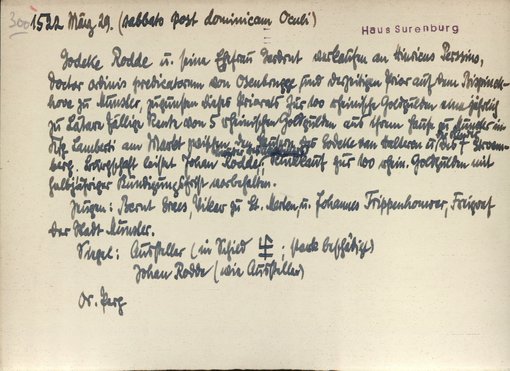 300 1522 März 29. (sabbato post dominicam Oculi)
Haus Surenburg
Jodeke Rodde u. seine Ehefrau Derdrut verkaufen an Hinricus
Doctor ordinis predicatorum von Osenbrugge und derzeitigen Prior auf dem Bispinck-
hove zu Münster, zugunsten dieses Priorats für 100 rheinische Goldgulden eine jährlich
zu Latare fällige Rente von 5 rheinischen Goldgulden aus ihrem Hause zu Münster in
St. Lamberti am Markt zwischen den Häusern des Godeke van u. des
berg. Bürgschaft leistet Johan Rodde, Rückkauf für 100 rhein. Goldgulden mit
halbjähriger Kündigungsfrist vorbehalten.
Zeugen: Bernt Drees, Vikar zu St. u. Johannes Trippenhouwer, Freigraf
der Stadt Münster.
Siegel: Aussteller (im Schild ; stark beschädigt)
Johan Rodde (wie Aussteller)
Or. Perg